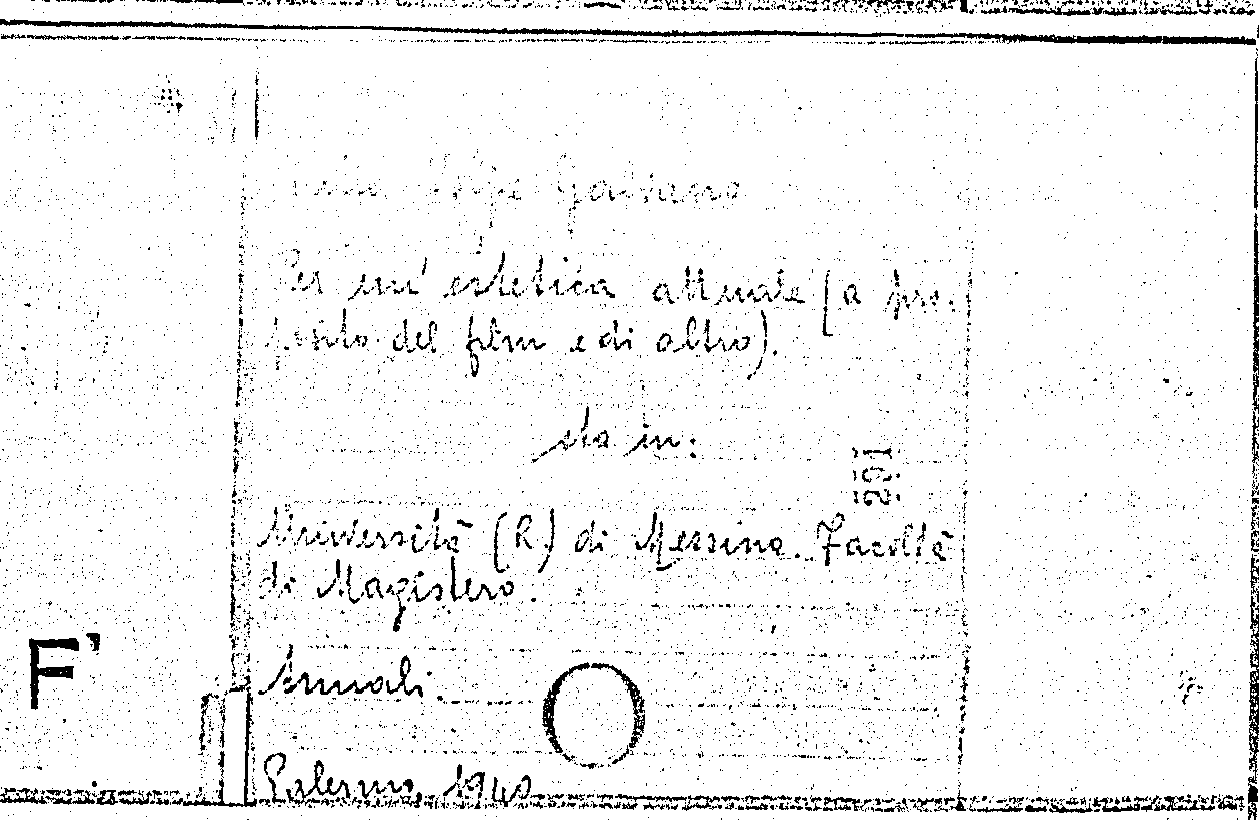 Galvano
Per un'estetica attuale (a pro-
posito del film e di altro).
sta in:
201
Università (R.) di Messina. Facoltà
di Magistero.
F'
Annali.
O
Palermo, 1940